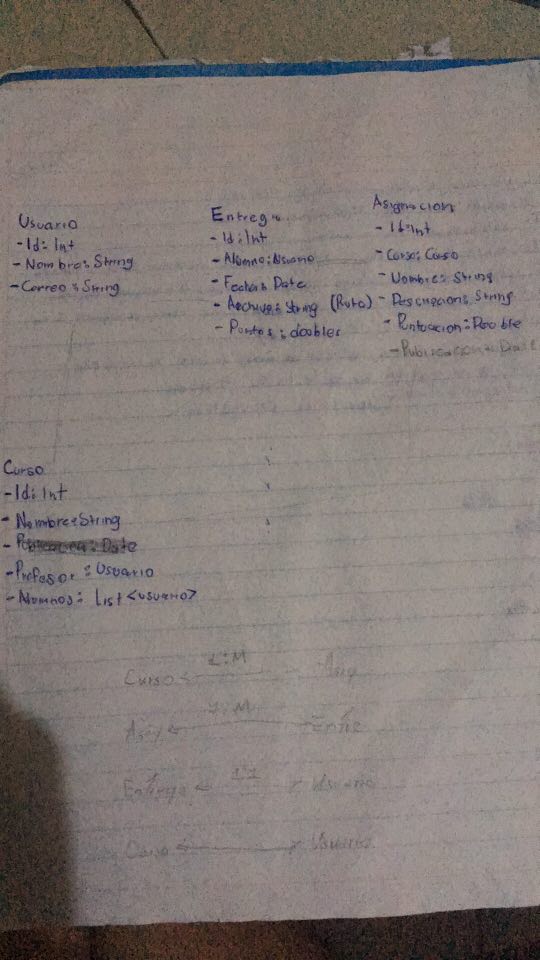 Usuario
- Id: Int
- Nombre: String
- Correo: String
Entrega
- Id: Int
- Alumno: Usuario
- Fecha: Date
- Archivo: String (Ruta)
- Puntos: doubles
Asignacion
- Id: Int
- Curso: Curso
- Nombre: String
- Descripcion: String
- Puntuacion: Double
- Publicacion: Date
Curso
- Id: Int
- Nombre: String
- Publicacion: Date
- Profesor: Usuario
- Alumnos: List <usuario>
Curso 1:M Asig
Asig 1:M
Entrega 1:1 Usuario
Curso Usuario